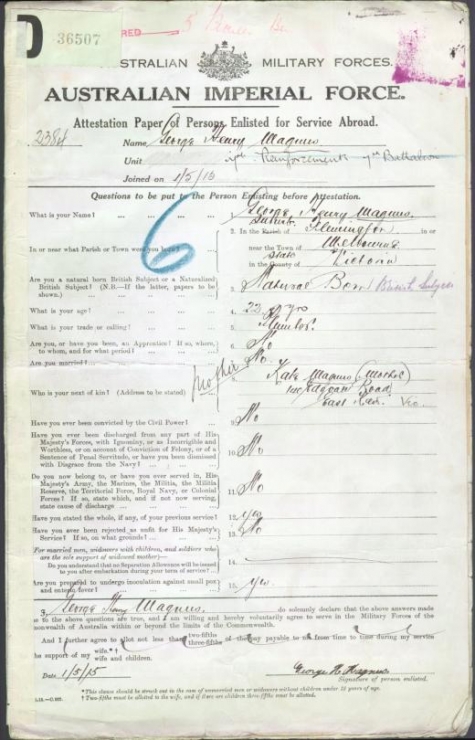 D
36507
AUSTRALIAN MILITARY FORCES.
AUSTRALIAN IMPERIAL FORCE.
Attestation Paper of Persons Enlisted for Service Abroad.
Name George Henry Magnus
Unit Reinforcements 7th Battalion
Joined on 1/5/15
Questions to be put to the Person Enlisting before Attestation.
6
What is your Name? ... 1. George Henry Magnus
In or near what Parish or Town were you born? ... 2. In the Parish of Flemington in or
near the Town of Melbourne
in the County of Victoria
State
Are you a natural born British Subject or a Naturalized
British Subject? (N.B.—If the latter, papers to be
shown.) 3. Natural Born British Subject
What is your age? ... 4. 22 yrs
What is your trade or calling? ... 5. Plumber
Are you, or have you been, an Apprentice? If so, where,
to whom, and for what period? 6. No
Are you married? ... No
Mother
Who is your next of kin? (Address to be stated) Kate Magnus (Mother)
Road
East Vic.
Have you ever been convicted by the Civil Power? 9. No
Have you ever been discharged from any part of His
Majesty's Forces, with Ignominy, or as Incorrigible and
Worthless, or on account of Conviction of Felony, or of a
Sentence of Penal Servitude, or have you been dismissed
with Disgrace from the Navy? 10. No
Do you now belong to, or have you ever served in, His
Majesty's Army, the Marines, the Militia, the Militia
Reserve, the Territorial Force, Royal Navy, or Colonial
Forces? If so, state which, and if not now serving,
state cause of discharge 11. No
Have you stated the whole, if any, of your previous service? 12. yes
Have you ever been rejected as unfit for His Majesty's
Service? If so, on what grounds? 13. No
For married men, widowers with children, and soldiers who
are the sole support of widowed mother—
Do you understand that no Separation Allowance will be issued
to you after embarkation during your term of service? 14.
Are you prepared to undergo inoculation against small pox
and enteric fever? 15. yes.
George Henry Magnus do solemnly declare that the above answers made
to the above questions are true, and I am willing and hereby voluntarily agree to serve in the Military Forces of the
Commonwealth of Australia within or beyond the limits of the Commonwealth.
And I further agree to allot not less than two-fifths
three-fifths of the pay payable to me from time to time during my service
the support of my wife.*†
wife and children.
Date 1/5/15
George H. Magnus
Signature of person enlisted.
*This clause should be struck out in the case of unmarried men or widowers without children under 18 years of age.
† Two-fifths must be allotted to the wife, and if there are children three-fifths must be allotted.